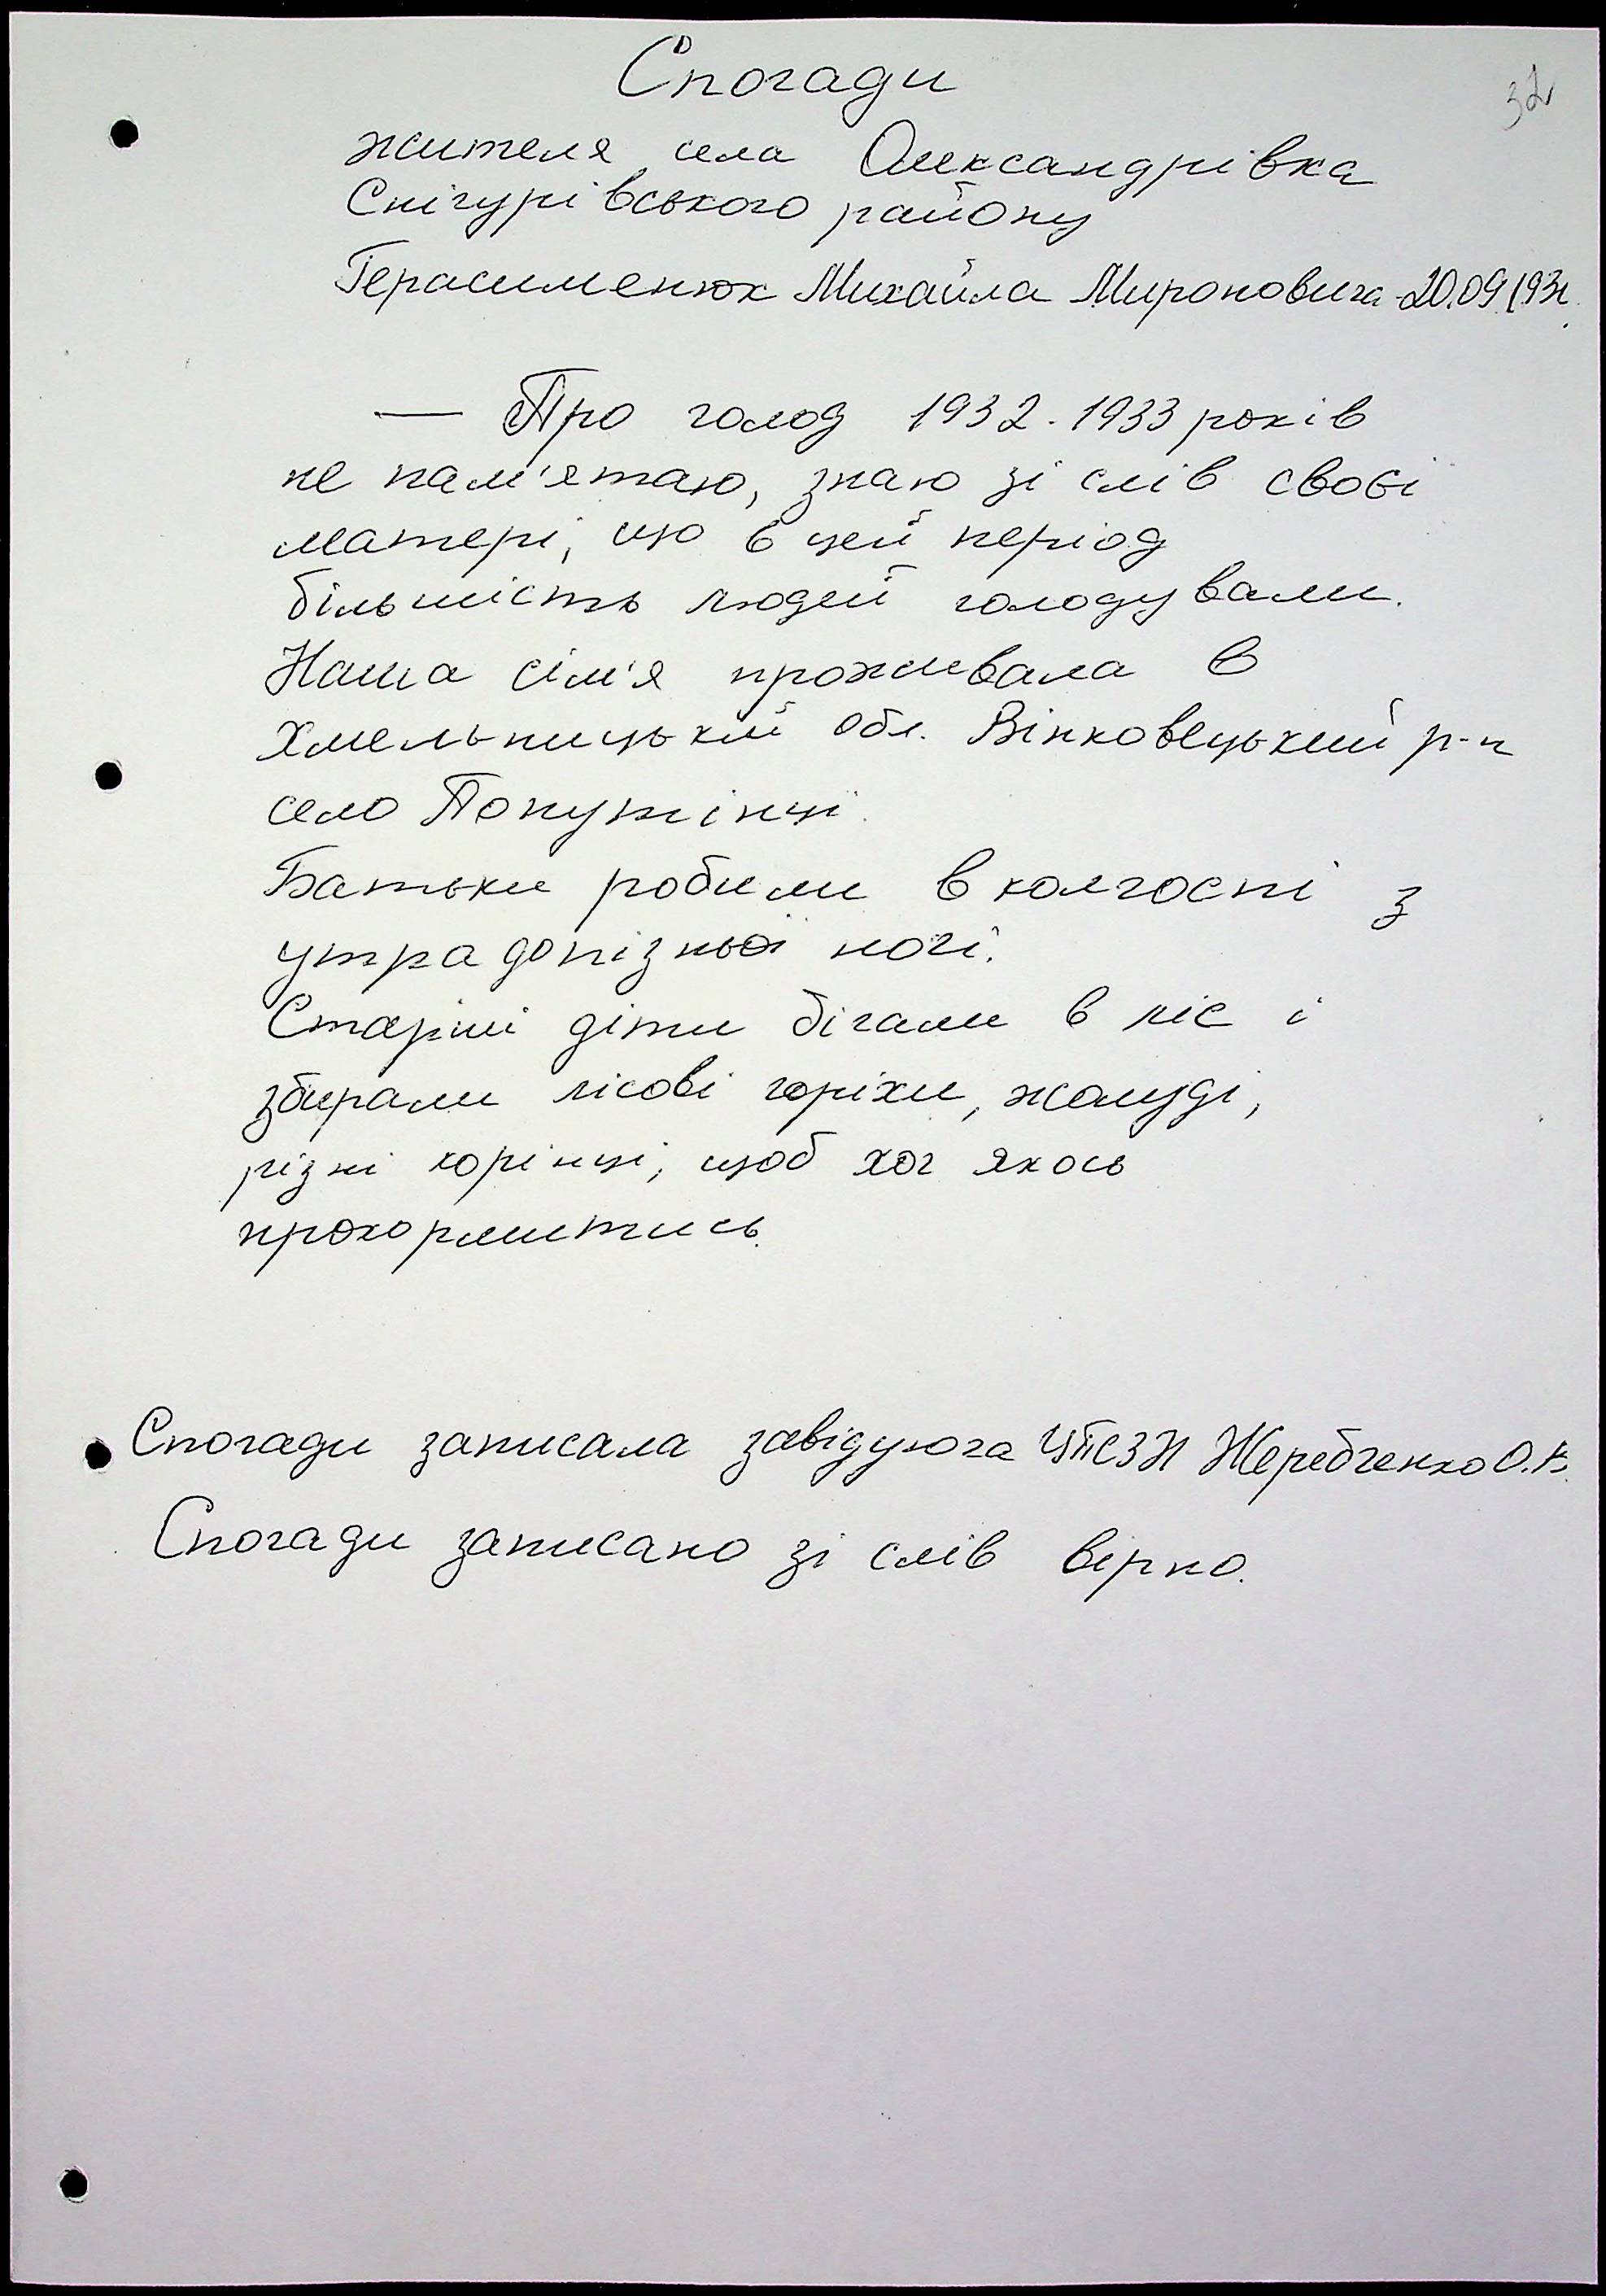 32
Спогади
жителя села Олександрівка
Снігурівського району
Герасименюк Михайла Мироновича 20.09.193
— Про голод 1932-1933 років
не пам'ятаю, знаю зі слів своєї
матері, що в цей період
більшість людей голодували.
Наша сім'я проживала в
Хмельницькій обл. Віньковецький р-н
село Покутинці.
Батьки робили в колгоспі з
утра допізньої ночі.
Старші діти бігали в ліс і
збирали лісові горіхи, жолуді,
різні корінці, щоб хоч якось
прокормитись.
Спогади записала завідуюча Жеребченко О.В.
Спогади записано зі слів вірно.